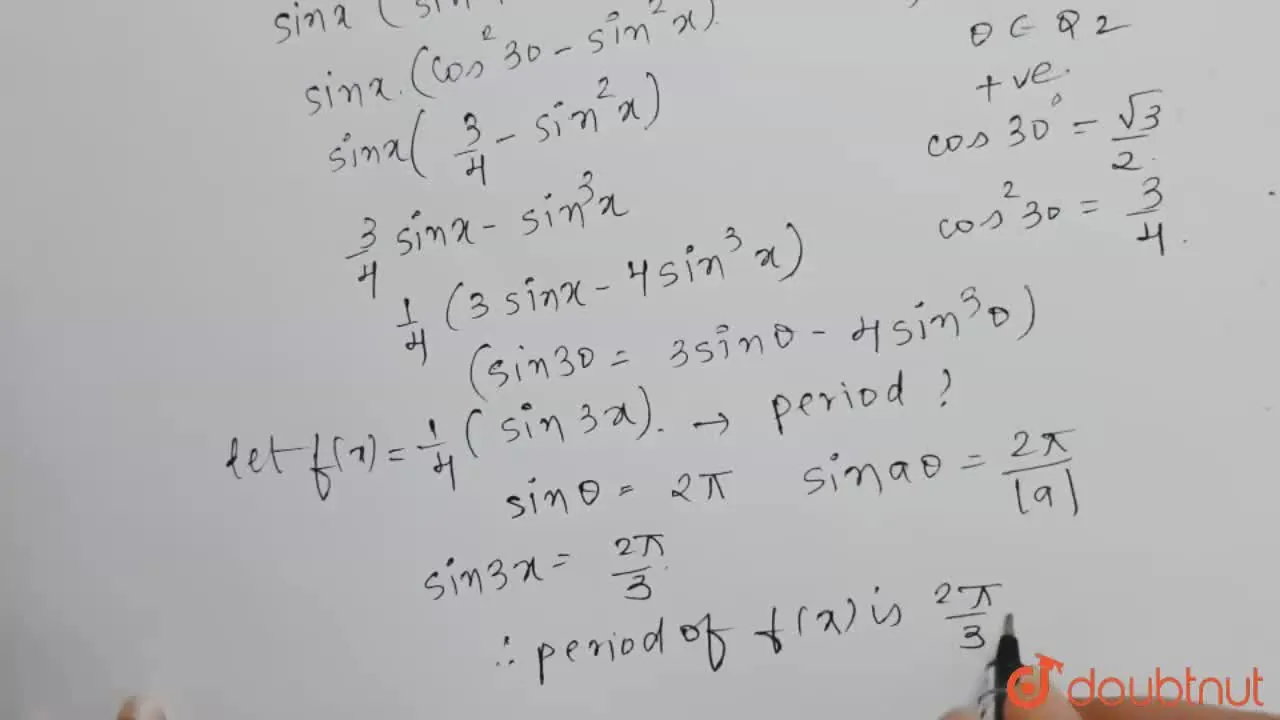 sinx (sin
sinx.(cos²30 - sin²x).
sinx(3/4 - sin²x)
3/4 sinx - sin³x
1/4 (3 sinx - 4 sin³x)
(sin3θ = 3sinθ - 4sin³θ)
let f(x) = 1/4 (sin3x). → period ?
sinθ = 2π sinaθ = 2π/|a|
sin3x = 2π/3
∴ period of f(x) is 2π/3
θ ∈ Q2
+ve.
cos 30° = √3/2.
cos²30 = 3/4.
doubtnut